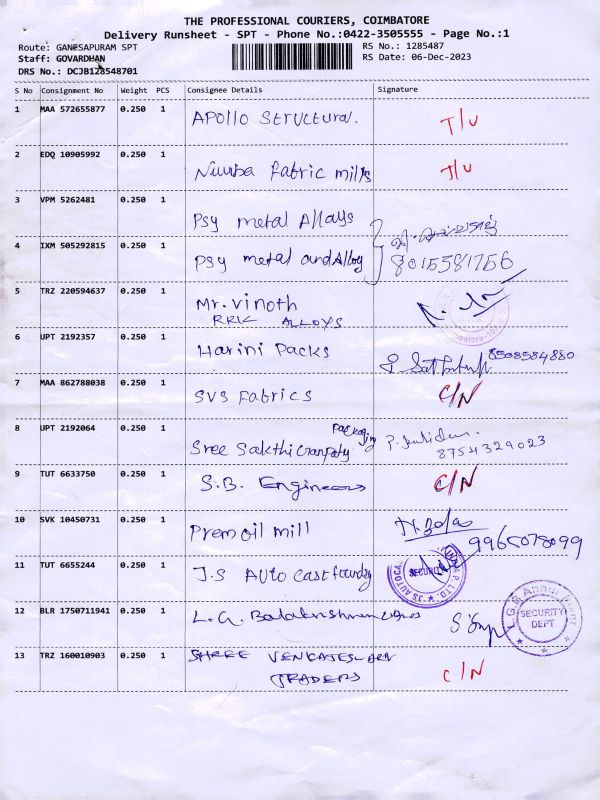 THE PROFESSIONAL COURIERS, COIMBATORE
Delivery Runsheet - SPT - Phone No.:0422-3505555 - Page No.:1
Route: GANESAPURAM SPT RS No.: 1285487
Staff: GOVARDHAN RS Date: 06-Dec-2023
DRS No.: DCJB128548701
S No Consignment No Weight PCS Consignee Details Signature
1 MAA 572655877 0.250 1 Apollo Structural. T/U
2 EDQ 10905992 0.250 1 Fabric mills T/U
3 VPM 5262481 0.250 1 Psy metal Allays
4 IXM 505292815 0.250 1 Psy metal and Alloy 8015581756
5 TRZ 220594637 0.250 1 Mr. Vinoth
RRK ALLOYS
6 UPT 2192357 0.250 1 Harini Packs 8508584880
7 MAA 862788038 0.250 1 SVS Fabrics C/N
8 UPT 2192064 0.250 1 Sree Sakthi Packaging 8754329023
9 TUT 6633750 0.250 1 S.B. Engineers C/N
10 SVK 10450731 0.250 1 Prem oil mill 9965078099
11 TUT 6655244 0.250 1 J.S Auto cast foundry JS AUTOCA SECURITY P. LTD.
12 BLR 1750711941 0.250 1 L.G. Balakrishnan & Bros SECURITY DEPT
13 TRZ 160010903 0.250 1 SHREE VENKATESWARA
TRADERS C/N